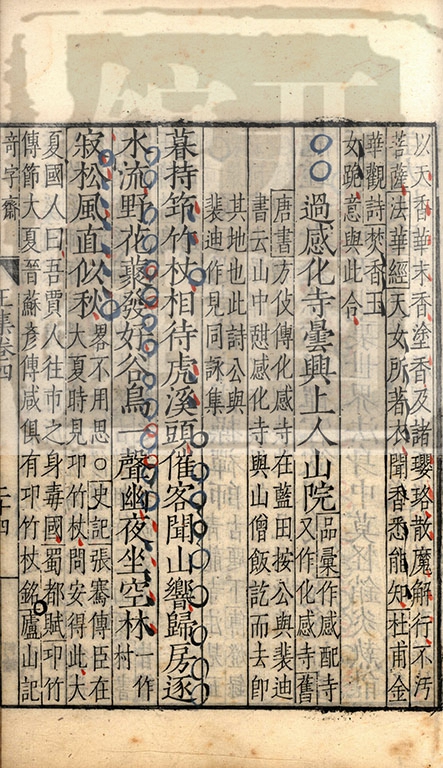 以天香華末香塗香及諸瓔珞散魔解行不汚
菩薩法華經天女所者不聞香悉能知杜甫金
華觀詩焚香玉
女跪意與此合
過感化寺曇興上人山院品彙作感配寺
又作化感寺舊
唐書方伎傳化感寺在藍田按公與裴迪
書云山中憩感化寺與山僧飯訖而去即
其地也此詩公與
裴迪作見同詠集
暮持筇竹杖相待虎溪頭催客聞山響歸房逐
水流野花叢發好谷鳥一聲幽夜坐空林一作
村
寂松風直似秋畧不用思○史記張騫傳臣在
大夏時見邛竹杖問安得此大
夏國人曰吾賈人往市之身毒國蜀都賦邛竹
傳節大夏晉蘇彥傳咸俱有邛竹杖銘○廬山記
奇字齋 王集卷四 二十四